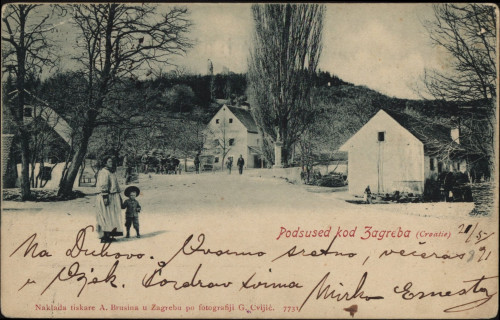 Podsused kod Zagreba (Croatie)
21/5
Na Duhovo. Ovamo sretno, večeras
u Osjek. Pozdrav svima
Mirko Ernesty
Naklada tiskare A. Brusina u Zagrebu po fotografiji G. Cvijić. 7731